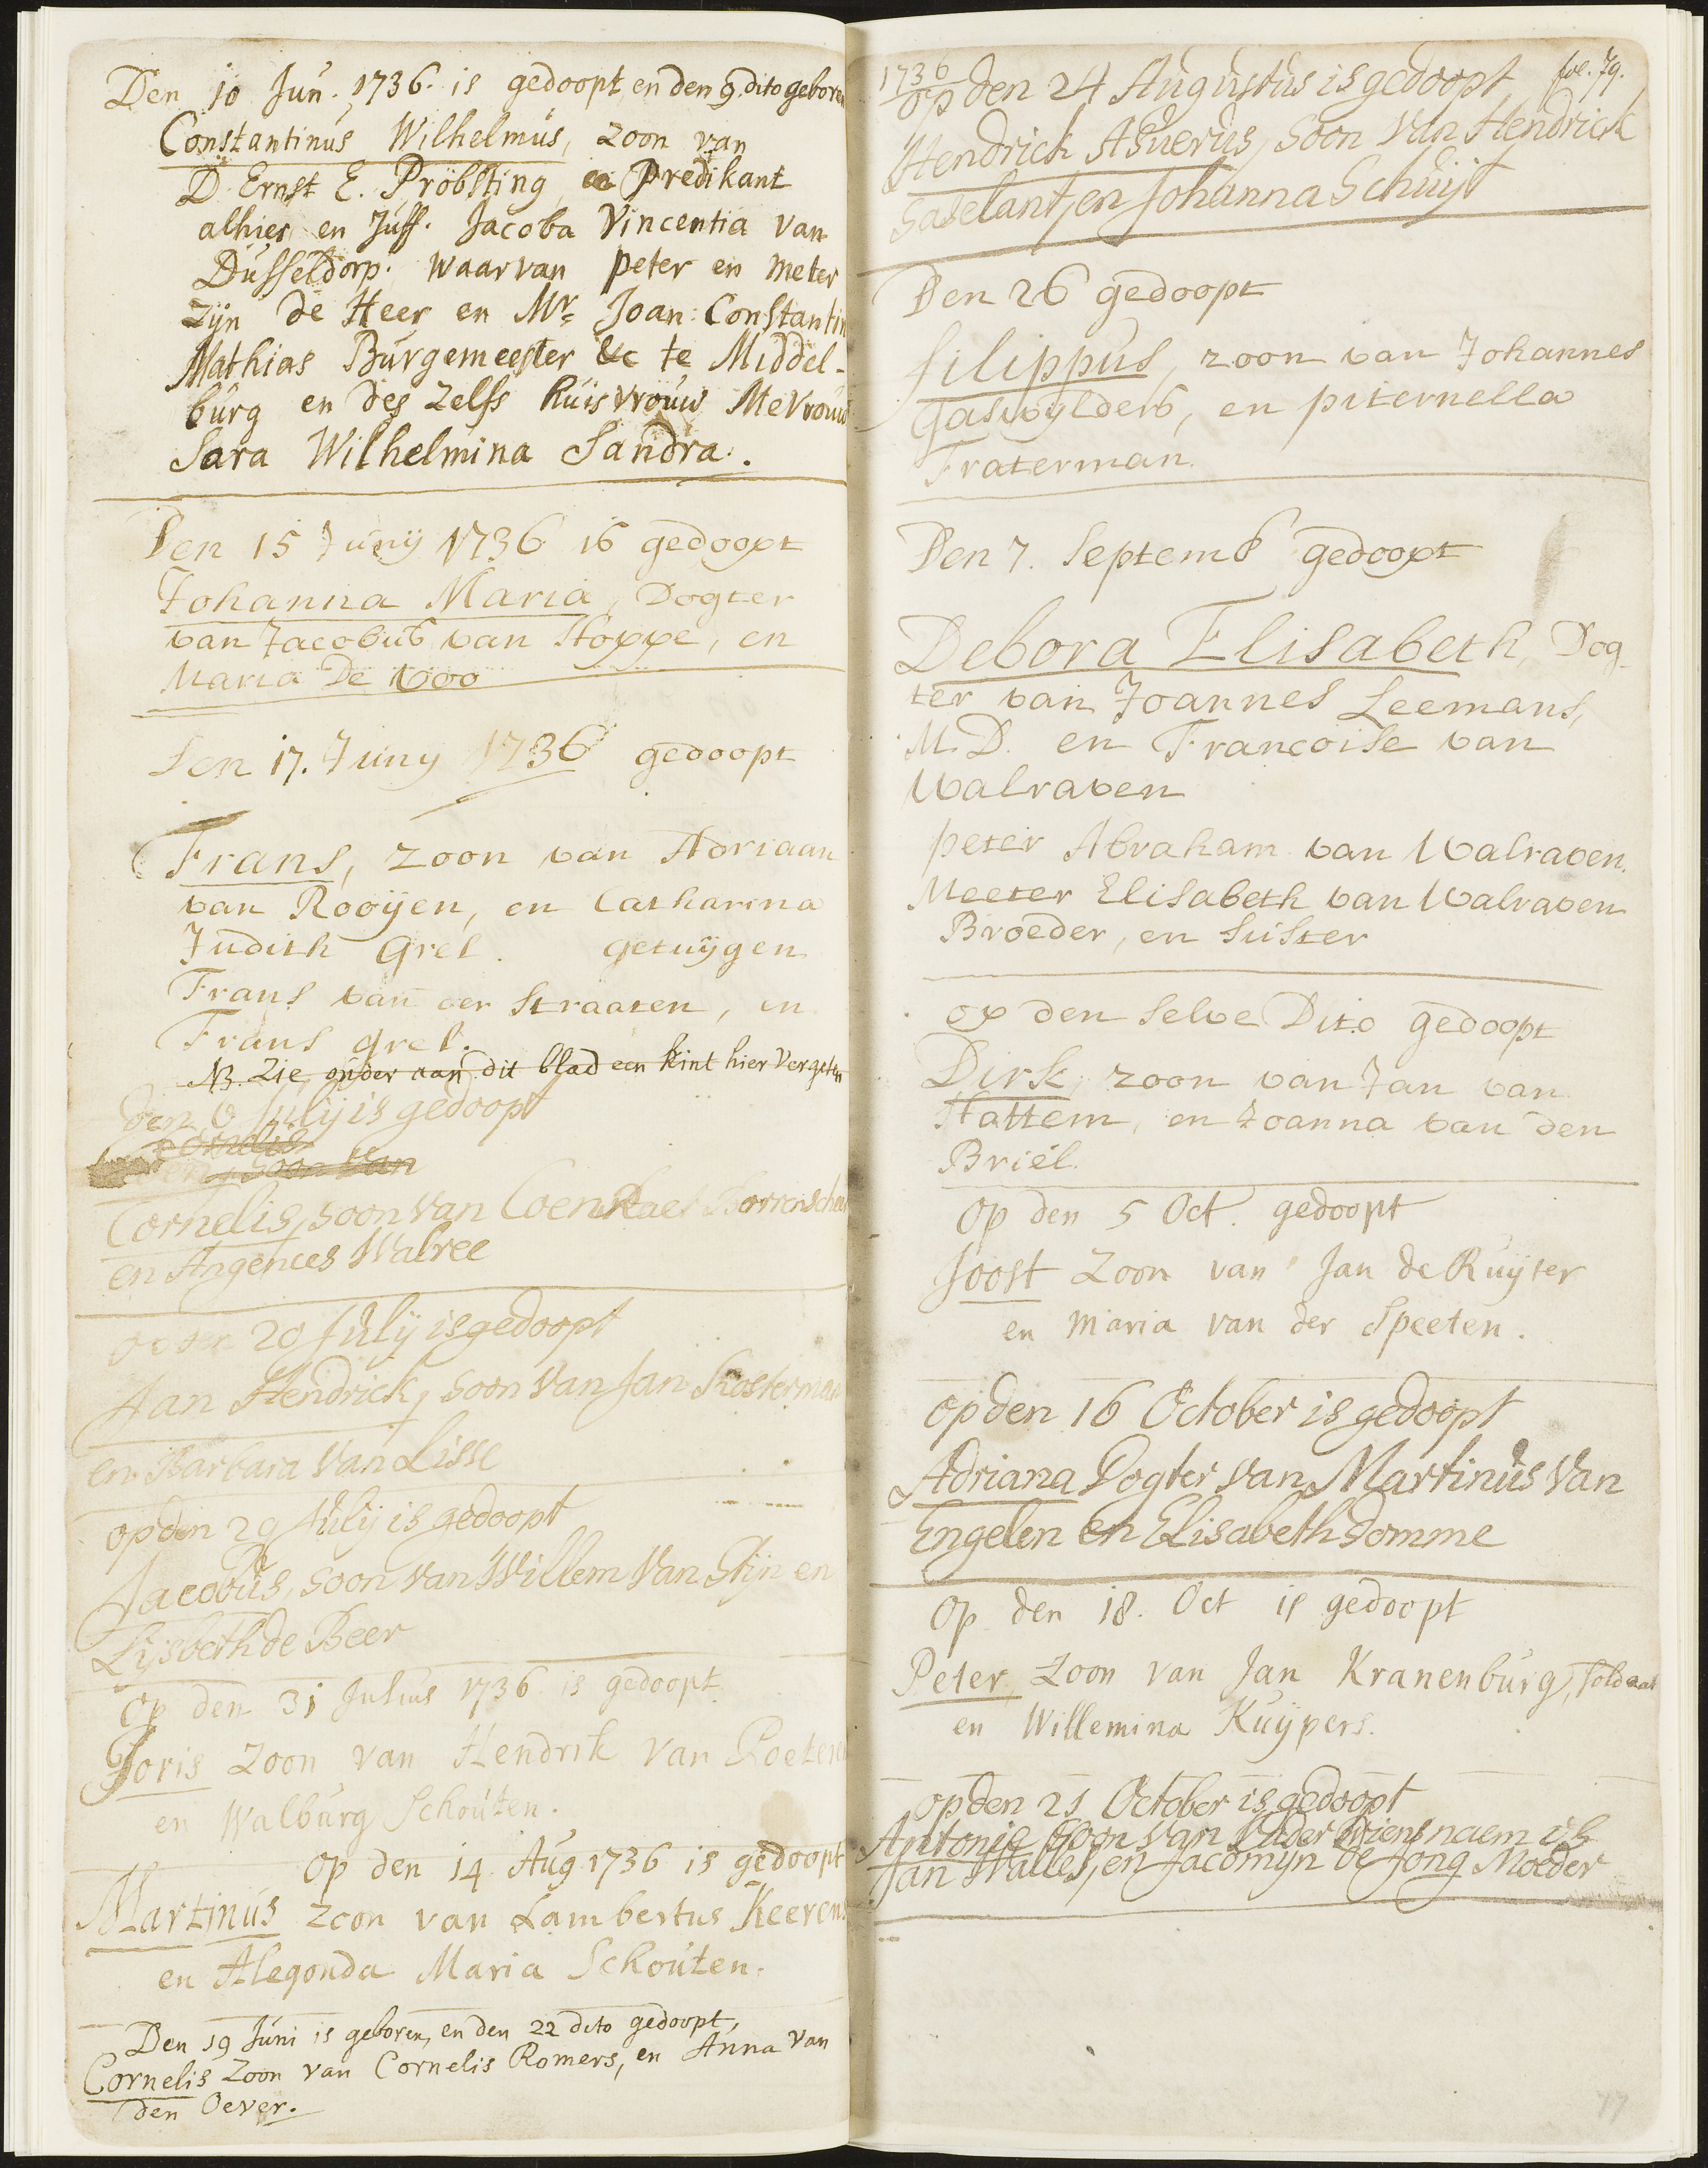 Den 10 Jun. 1736. is gedoopt, en den 9. dito geboren
Constantinus Wilhelmus, zoon van
D. Ernst E. Pröbsting, Predikant
alhier en Juff. Jacoba Vincentia van
Dusseldorp. waarvan peter en meter
zijn de Heer en Mr. Joan: Constantin
Mathias Burgemeester &c te Middel-
burg en des zelfs huisvrouw Mevrouw
Sara Wilhelmina Sandra.
Den 15 Junij 1736 is gedoopt
Johanna Maria, Dogter
van Jacobus van Hoppe, en
Maria De Voo
Den 17. Juny 1736 gedoopt
Frans, zoon van Adriaan
van Rooÿen, en Catharina
Judith Grel. getuijgen
Frans van der Straaten, en
Frans Grel.
NB. Zie onder aan dit blad een kint hier vergeten
den 6 Julij is gedoopt
Cornelis
soon van
Cornelis, soon van Coenraet
en Angenees Walree
op den 20 Julij is gedoopt
Jan Hendrick, soon van Jan Kosterman
en Barbara van Lisse
op den 29 Julij is gedoopt
Jacobus, soon van Willem van Rijn en
Lijsbeth de Beer
Op den 31 Julius 1736 is gedoopt
Joris Zoon van Hendrik van Roeteren
en Walburg Schouten.
Op den 14 Aug 1736 is gedoopt
Martinus Zoon van Lambertus Keerens
en Alegonda Maria Schouten.
Den 19 Juni is geboren, en den 22 dito gedoopt,
Cornelis Zoon van Cornelis Romers, en Anna van
den Oever.
1736 fol. 79.
op den 24 Augustus is gedoopt
Hendrick Asuerus, Soon van Hendrick
Saselant, en Johanna Schuijt
Den 26 gedoopt
filippus, zoon van Johannes
Gaswijlders, en piternella
Fraterman.
Den 7. Septemb gedoopt
Debora Elisabeth, Dog-
ter van Joannes Leemans,
M. D. en Francoise van
Walraven
peter Abraham van Walraven.
Meeter Elisabeth van Walraven
Broeder, en Suster
op den selve Dito gedoopt
Dirk, zoon van Jan van
Hattem, en Joanna van den
Briël.
Op den 5 Oct. gedoopt
Joost Zoon van Jan de Ruijter
en Maria van der Speeten.
op den 16 October is gedoopt
Adriana Dogter van Martinus van
Engelen en Elisabeth Somme
Op den 18. Oct is gedoopt
Peter Zoon van Jan Kranenburg, soldaat
en Willemina Kuijpers.
op den 21 October is gedoopt
Antonie Soon van Vader wiens naem is
Jan Walles, en Jacomijn de Jong Moeder